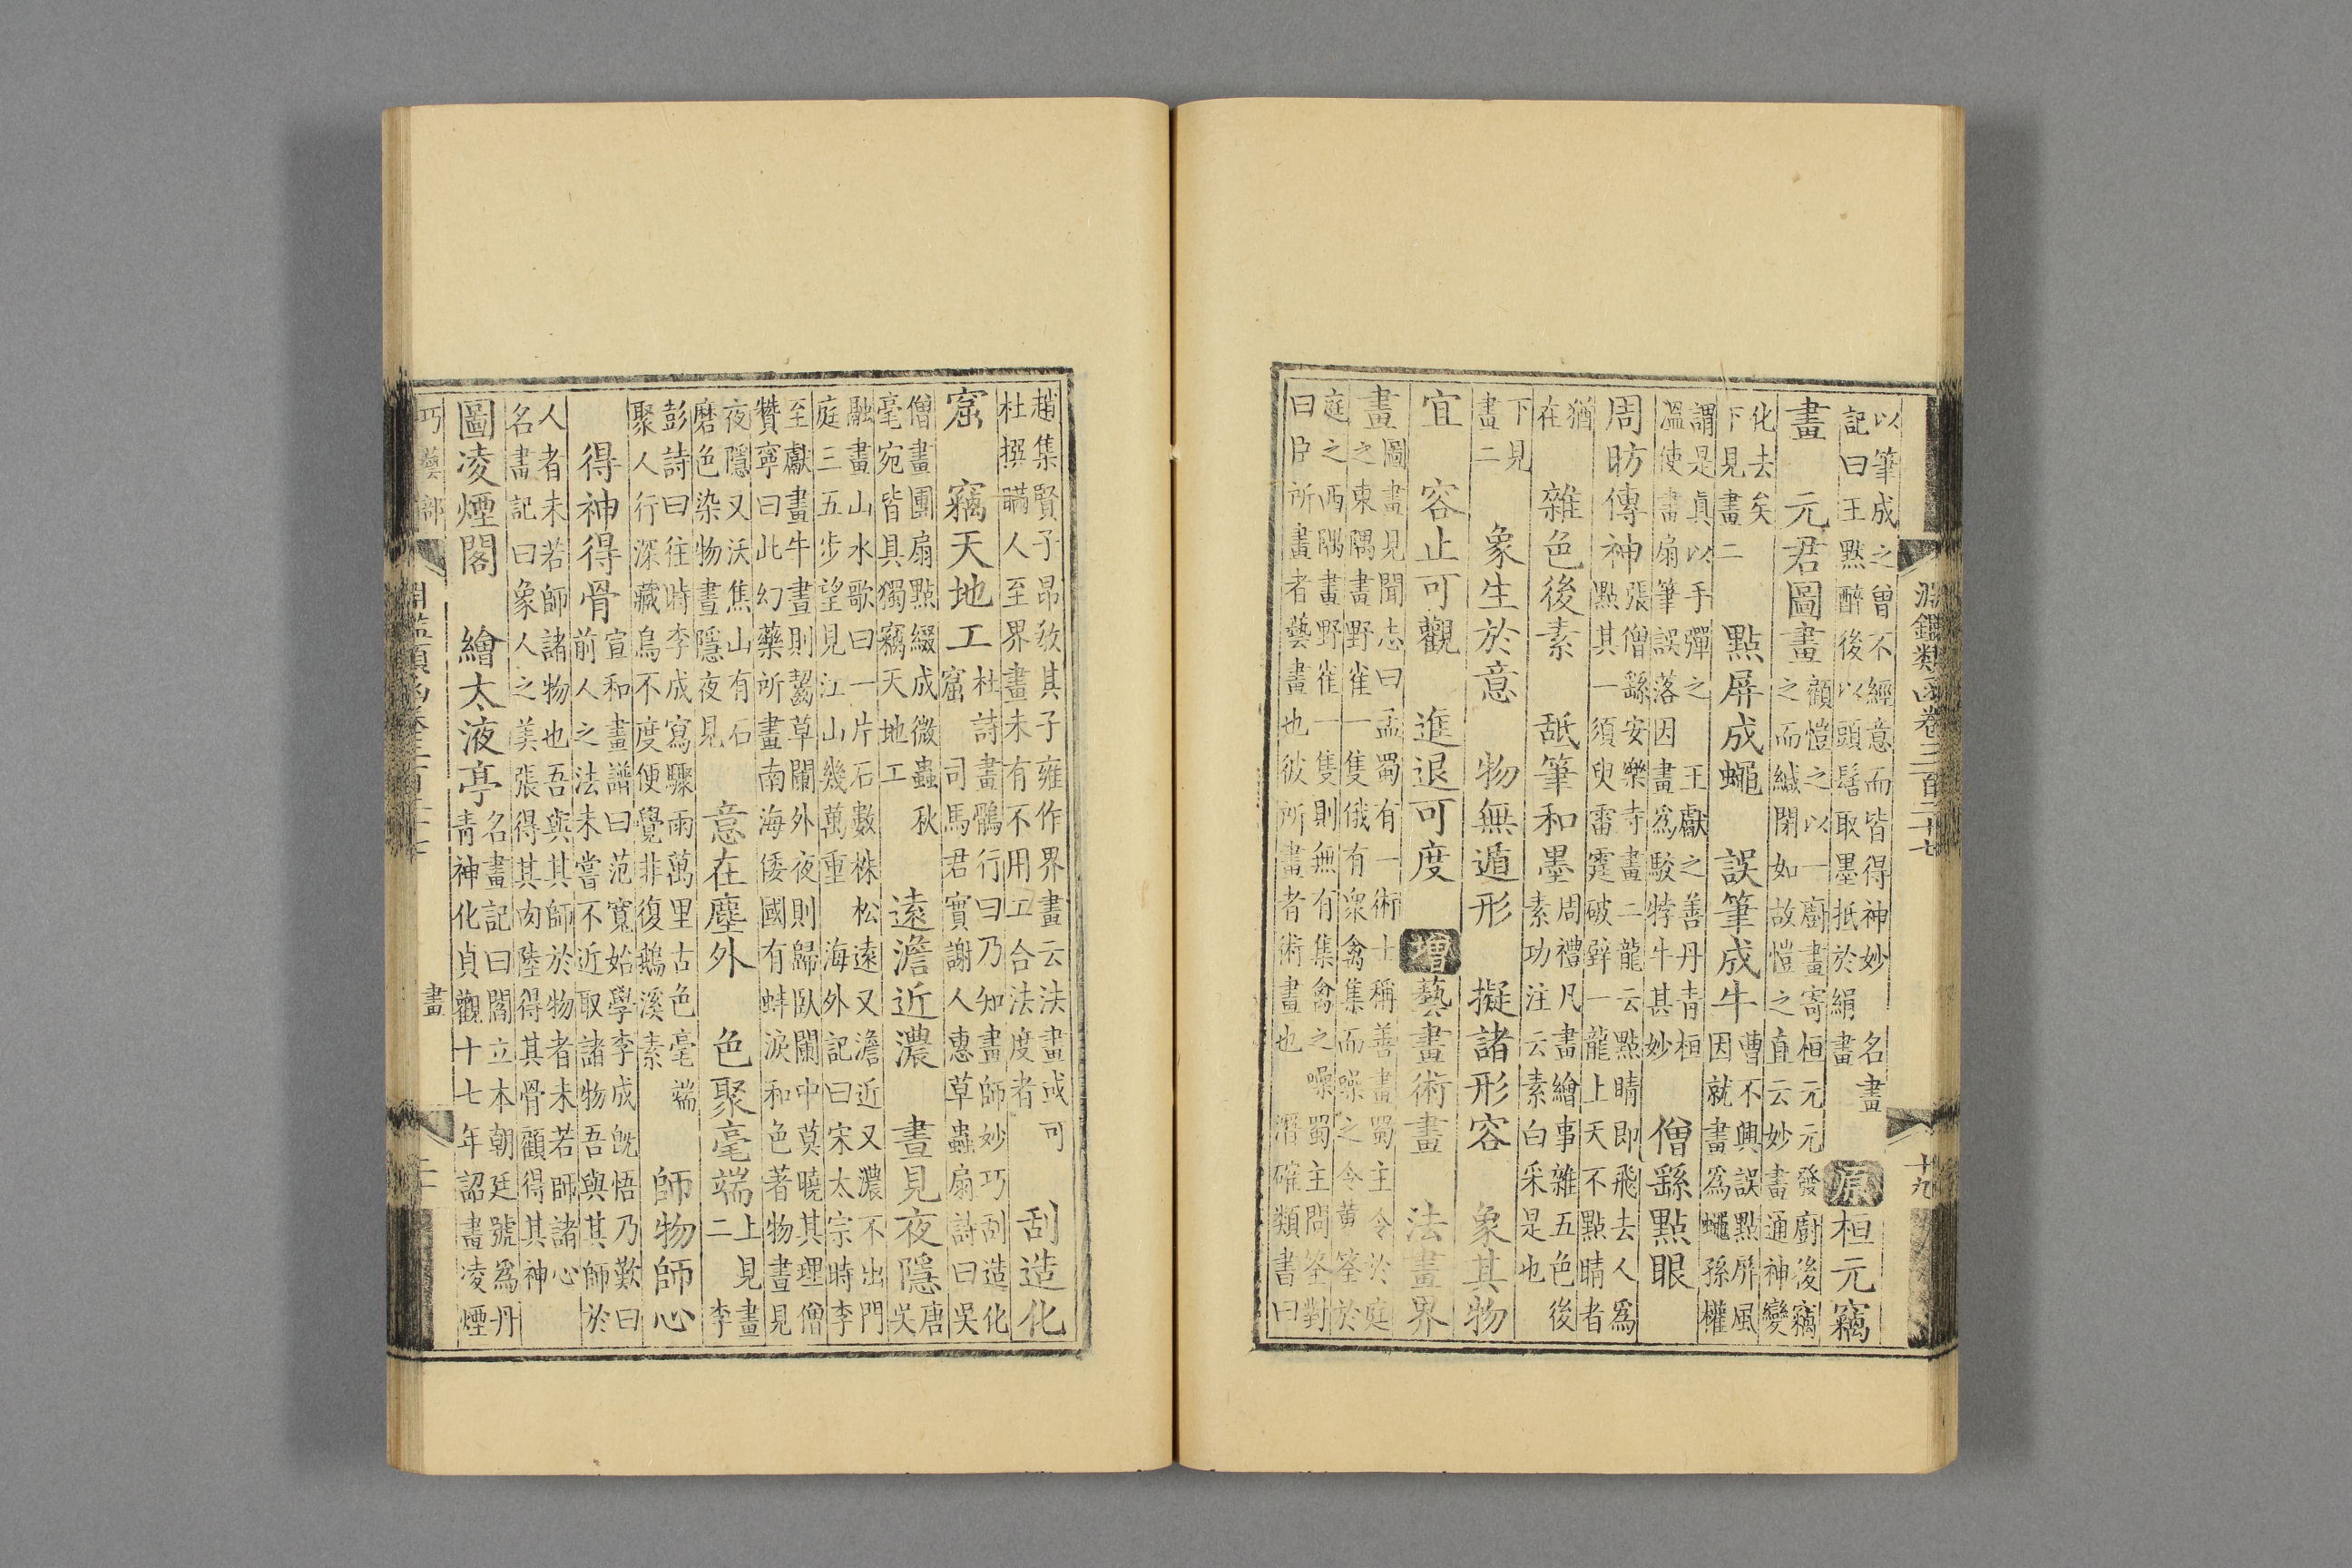 淵鑑類函卷三百二十七
十九
以筆成之曾不經意而皆得神妙 名畫
記曰王默醉後以頭髻取墨抵於絹畫
原 桓元竊
畫 元君圖畫
顧愷之以一廚畫寄桓元元發廚後竊
之而緘閉如故愷之直云妙畫通神變
化去矣
下見畫二
點屏成蠅 誤筆成牛
曹不興誤點屏風
因就畫為蠅孫權
謂是真以手彈之 王獻之善丹青桓
溫使畫扇筆誤落因畫為駁牸牛甚妙
僧繇點眼
周昉傳神
張僧繇安樂寺畫二龍云點睛即飛去人為
點其一須臾雷霆破壁一龍上天不點睛者
猶
在
雜色後素 舐筆和墨
周禮凡畫繪事雜五色後
素功注云素白采是也
下見
畫二
象生於意 物無遁形 擬諸形容 象其物
宜 容止可觀 進退可度 增 藝畫術畫 法畫界
畫
圖畫見聞志曰孟蜀有一術士稱善畫蜀主令於庭
之東隅畫野雀一隻俄有衆禽集而噪之令黄筌於
庭之西隅畫野雀一隻則無有集禽之噪蜀主問筌對
曰臣所畫者藝畫也彼所畫者術畫也 潛確類書曰
趙集賢子昂教其子雍作界畫云法畫或可
杜撰瞞人至界畫未有不用工合法度者
刮造化
窟 竊天地工
杜詩畫鶻行曰乃知畫師妙巧刮造化
窟 司馬君實謝人惠草蟲扇詩曰吳
僧畫團扇點綴成微蟲秋
毫宛皆具獨竊天地工
遠澹近濃 晝見夜隱
唐
吳
融畫山水歌曰一片石數株松遠又澹近又濃不出門
庭三五步望見江山幾萬重 海外記曰宋太宗時李
至獻畫牛晝則齧草闌外夜則歸臥闌中莫曉其理僧
贊寧曰此幻藥所畫南海倭國有蚌淚和色著物晝見
夜隱又沃焦山有石
磨色染物晝隱夜見
意在塵外 色聚毫端
上見畫
二 李
彭詩曰往時李成寫驟雨萬里古色毫端
聚人行深藏烏不度便覺非復鵝溪素
師物師心
得神得骨
宣和畫譜曰范寬始學李成既悟乃歎曰
前人之法未嘗不近取諸物吾與其師於
人者未若師諸物也吾與其師於物者未若師諸心
名畫記曰象人之美張得其肉陸得其骨顧得其神
圖凌煙閣 繪太液亭
名畫記曰閻立本朝廷號為丹
青神化貞觀十七年詔畫凌煙
巧藝部
淵鑑類函卷三百二十七
畫
二十